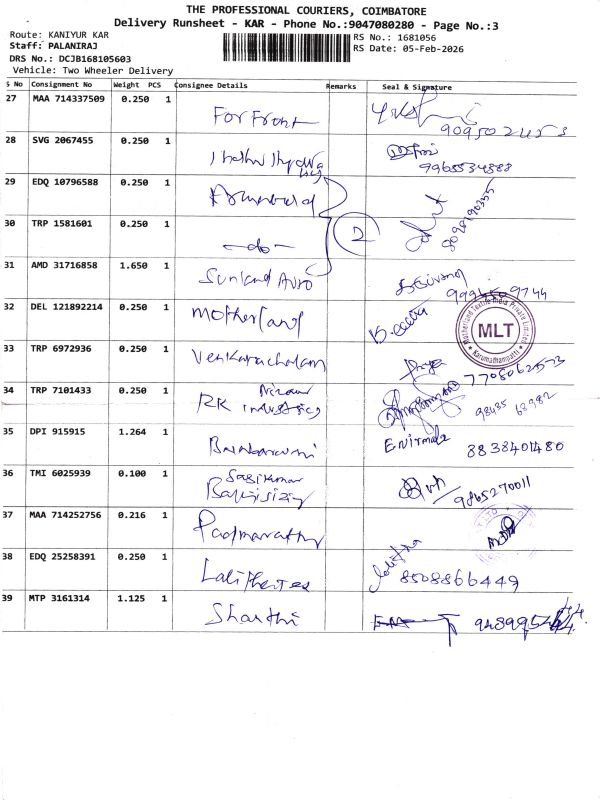 THE PROFESSIONAL COURIERS, COIMBATORE
Delivery Runsheet - KAR - Phone No.:9047080280 - Page No.:3
Route: KANIYUR KAR
RS No.: 1681056
Staff: PALANIRAJ
RS Date: 05-Feb-2026
DRS No.: DCJB168105603
Vehicle: Two Wheeler Delivery
S No Consignment No Weight PCS Consignee Details Remarks Seal & Signature
27 MAA 714337509 0.250 1 For Front
28 SVG 2067455 0.250 1 9965534888
29 EDQ 10796588 0.250 1 8098190355
2
30 TRP 1581601 0.250 1 -do-
31 AMD 31716858 1.650 1 Sunland Auto
32 DEL 121892214 0.250 1 Motherland
Motherland Textile India Private Limited
MLT
Karumathampatti
33 TRP 6972936 0.250 1 Venkatachalam 7708062573
34 TRP 7101433 0.250 1 RK Industries 98435 68982
35 DPI 915915 1.264 1 E.Nirmala 8838401480
36 TMI 6025939 0.100 1 Sasikumar 9865270011
37 MAA 714252756 0.216 1
38 EDQ 25258391 0.250 1 8508866449
39 MTP 3161314 1.125 1 Shanthi